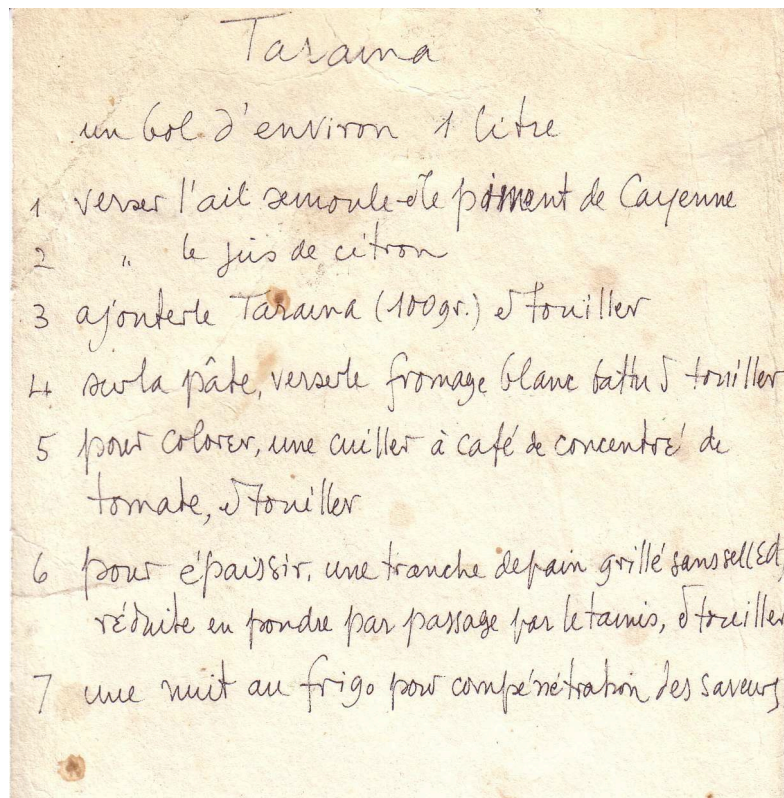 Tarama
un bol d'environ 1 litre
1 verser l'ail semoule et le piment de Cayenne
2 " le jus de citron
3 ajouter le Tarama (100gr.) et touiller
4 sur la pâte, verser le fromage blanc battu et touiller
5 pour colorer, une cuiller à café de concentré de
tomate, et touiller
6 pour épaissir, une tranche de pain grillé sans sel
réduite en poudre par passage par le tamis, et touiller
7 une nuit au frigo pour compénétration des saveurs